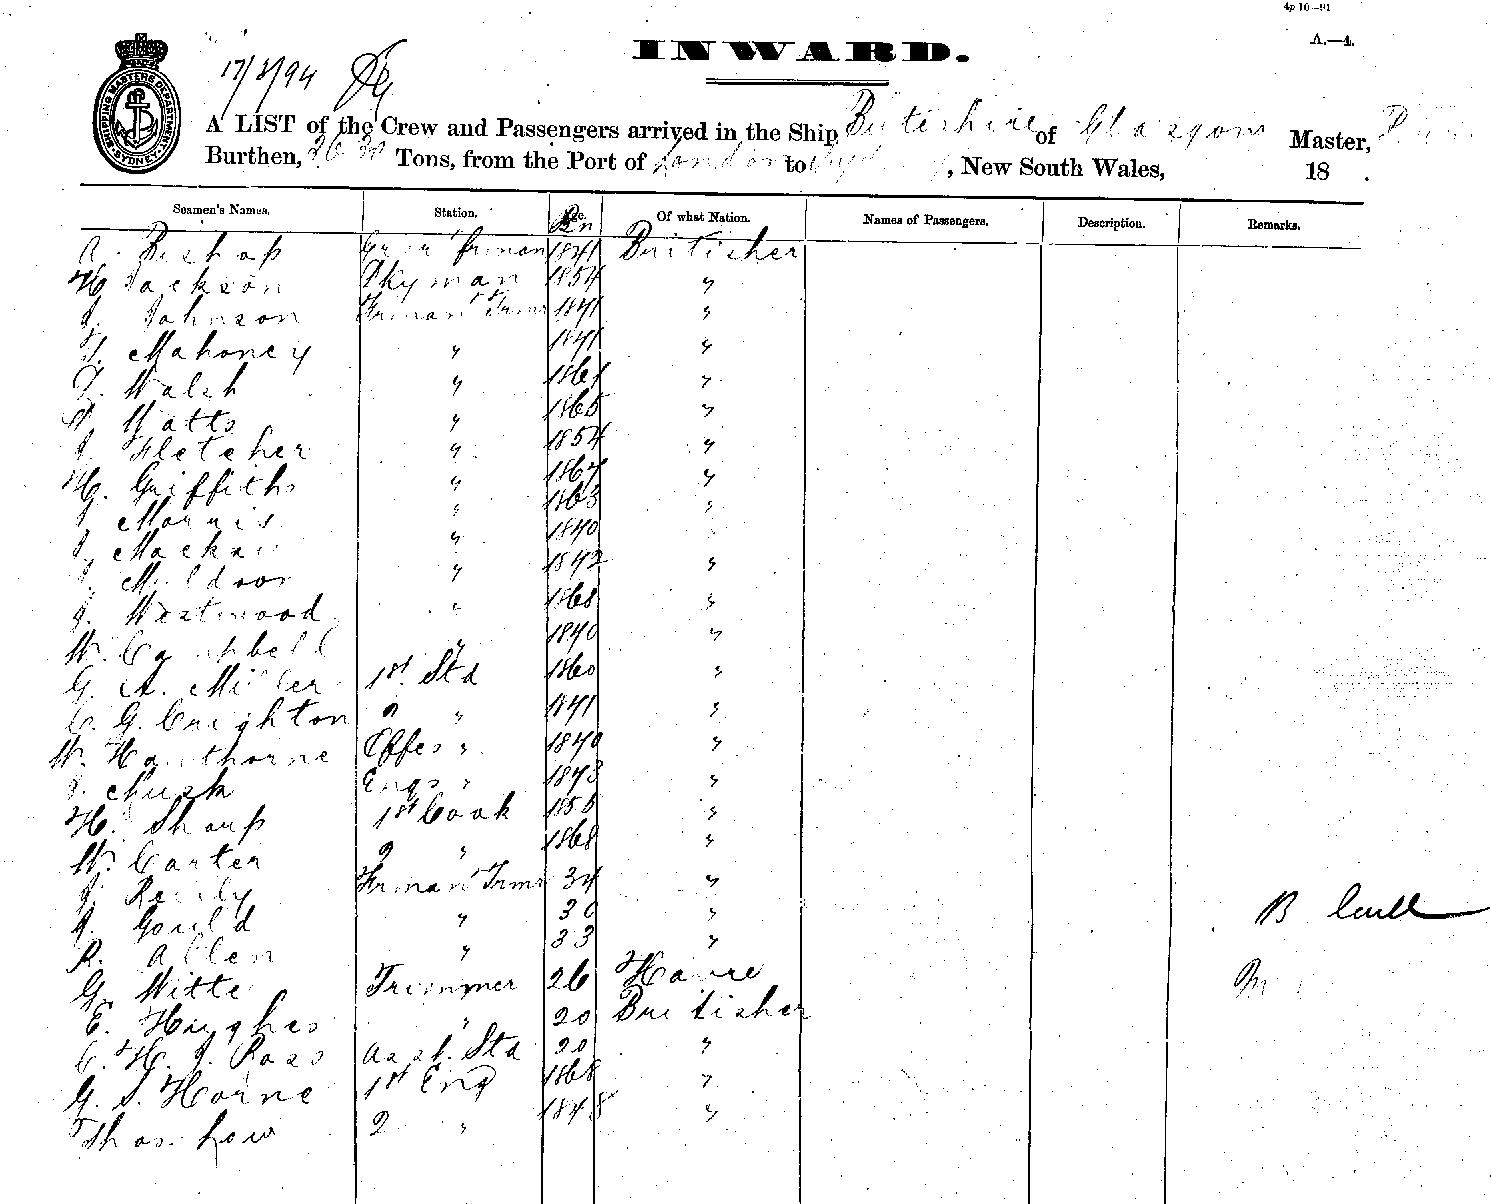 4p 10—91
A.—4.
INWARD.
17/3/94
SHIPPING MASTERS DEPARTMENT SYDNEY
A LIST of the Crew and Passengers arrived in the Ship Buteshire of Glasgow Master,
Burthen, Tons, from the Port of London to , New South Wales, 18 .
Seamen's Names. Station. Age. Bn Of what Nation. Names of Passengers. Description. Remarks.
A. Bishop 1841 Britisher
H Jackson 1854 "
J. Johnson Frman Trmr 1841 "
T. Mahoney " 1841 "
T. Walsh " 1861 "
Watts " 1865 "
J. Fletcher " 1854 "
Hy. Griffiths " 1867 "
J. Morris " 1863 "
J. Mackay " 1840 "
J. Muldoon " 1842 "
J. Westwood " 1868 "
W. Campbell " 1840 "
G. A. Miller 1st Std 1860 "
C. G. Crighton 2 " 1841 "
W. Hawthorne Offes " 1840 "
J. Engs " 1843 "
H. Sharp 1st Cook 1855 "
W. Carter 2 " 1868 "
J. Reilly Frman Trmr 34 "
J. Gould " 30 "
R. Allen " 33 "
G. Witte Trimmer 26 Havre
E. Hughes " 20 Britisher
C. H. J. Ross asst. Std 20 "
G. S. Horne 1st Eng 1868 "
Thos. Low 2 " 1848 "